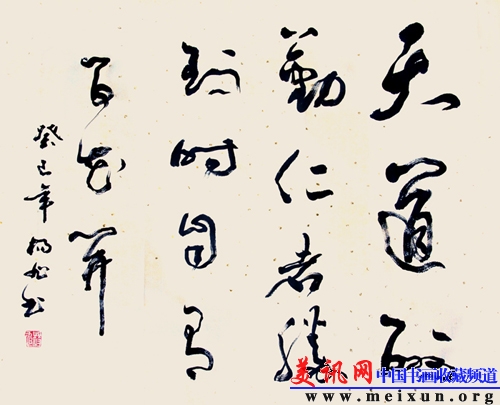 天道酬
勤仁者勝
到时自有
百花開
癸巳年
美讯网 中国书画收藏频道
www.meixun.org